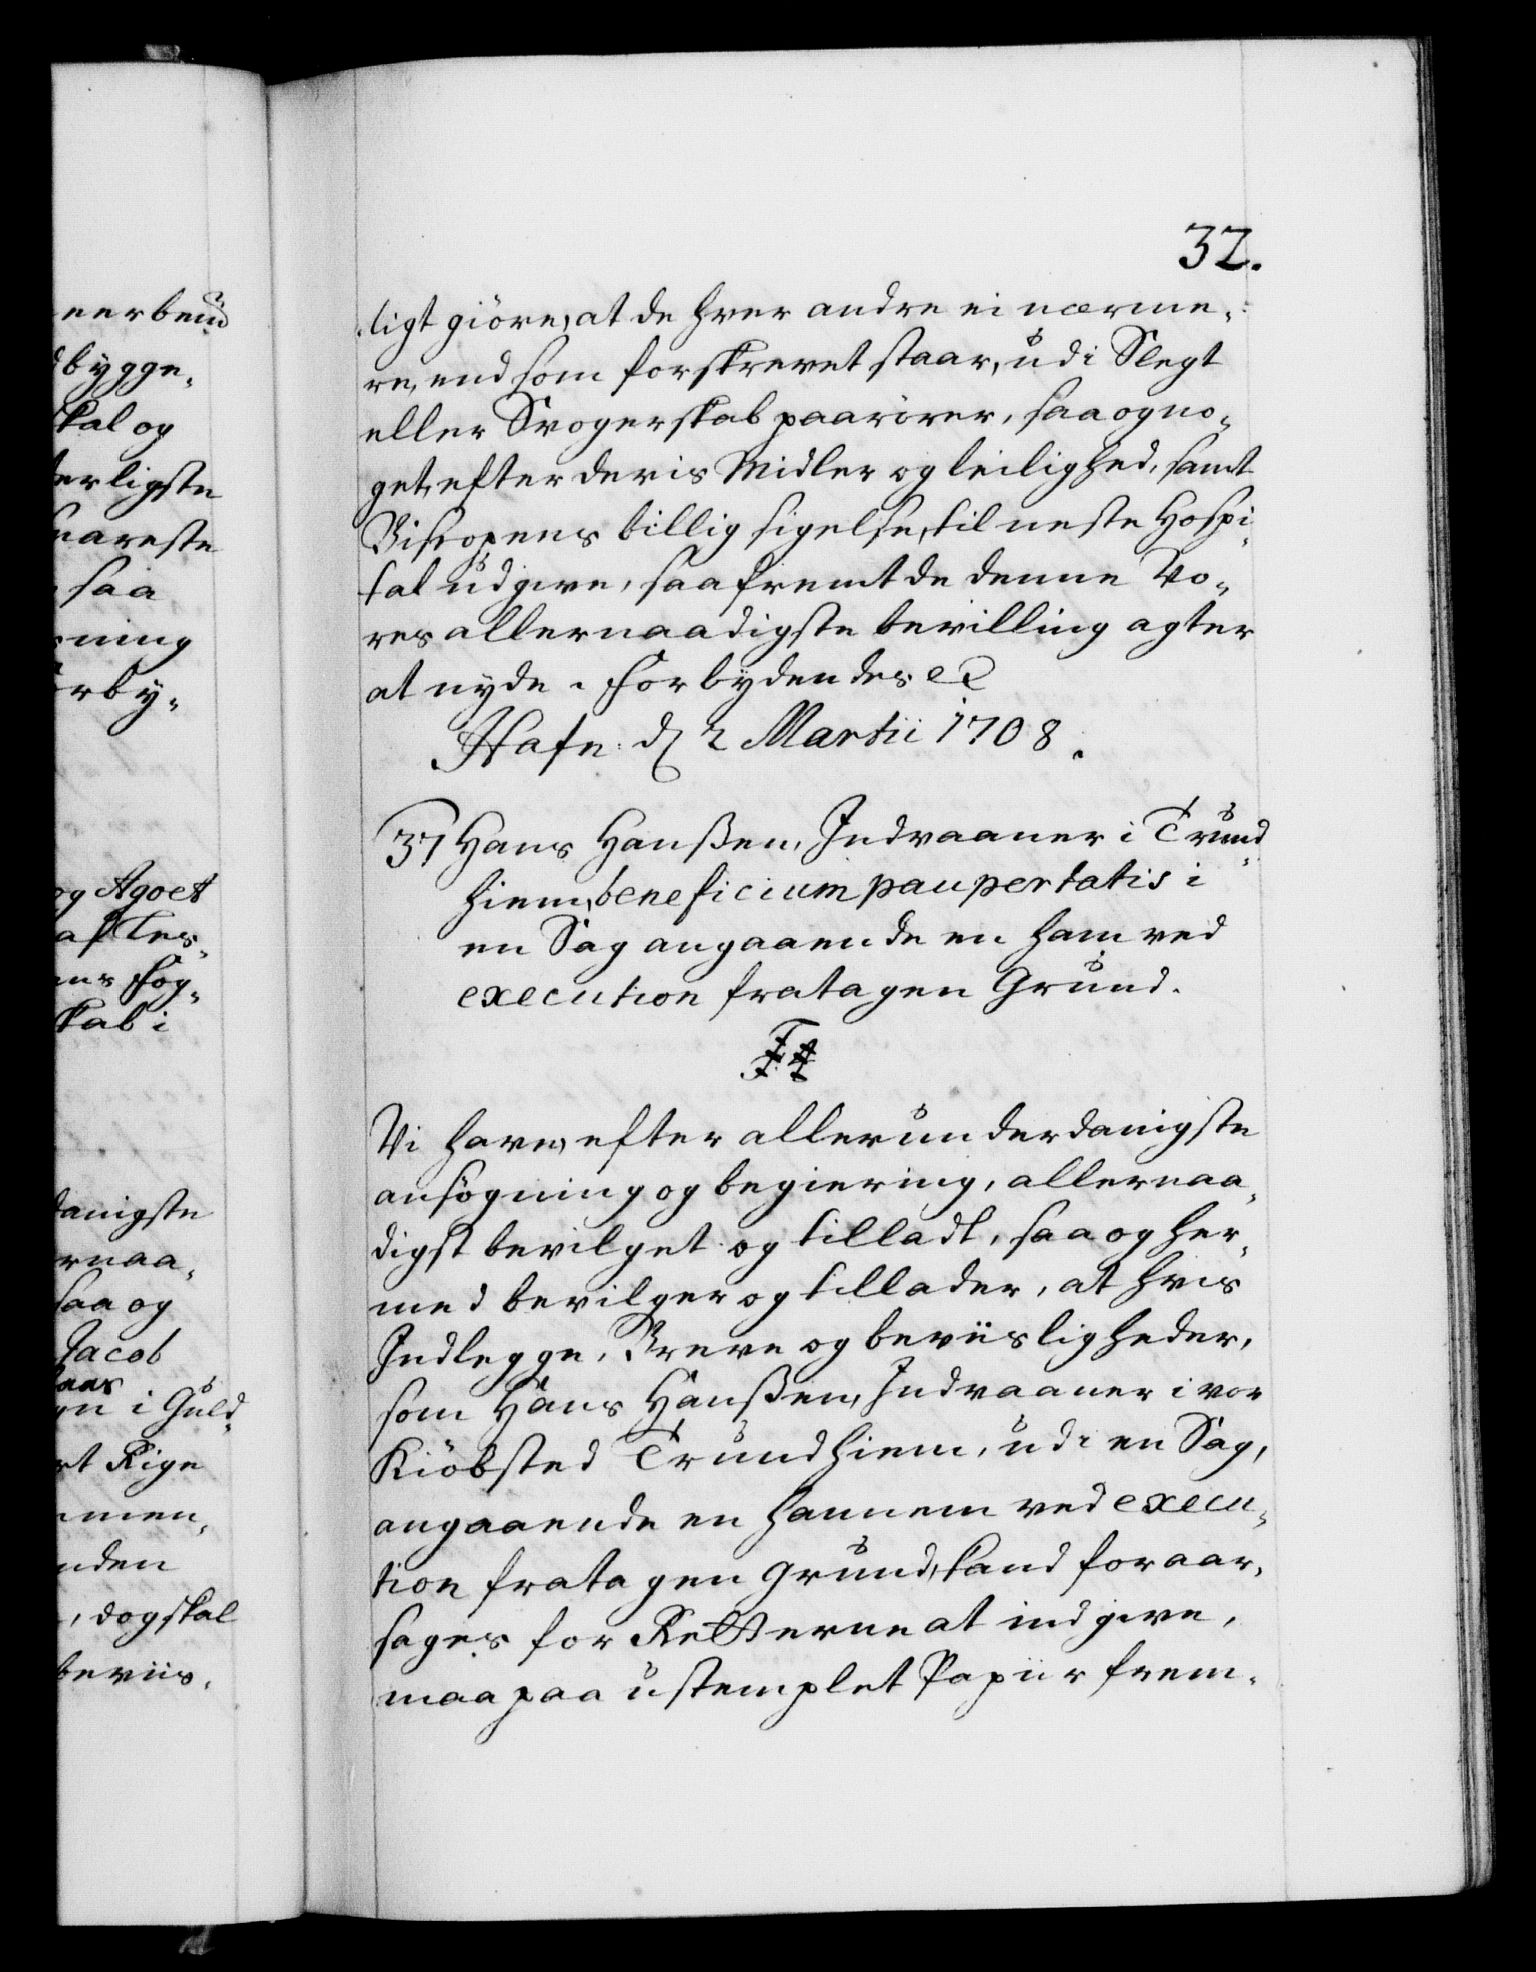 32.
ligt giöre, at de hver andre ei nærme-
re, end som forskrevet staar, udi Slegt
eller Svogerskab paarører, saa og no-
get, efter deris Midler og leilighed, samt
Biscopens billig sigelse, til neste Hospi-
tal udgive, saa fremt de denne Vo-
res allernaadigste bevilling agter
at nyde. Forbydendes &
Hafn: d 2 Martii 1708.
37 Hans Hanßen, Indvaaner i Trund-
hiem, beneficium paupertatis i
en Sag angaaende en ham ved
execution fratagen Grund.
F4
Vi have, efter allerunderdanigste
ansøgning og begiering, allernaa-
digst bevilget og tilladt, saa og her-
med bevilger og tillader, at hvis
Indlegge, Breve og beviisligheder,
som Hans Hanßen, Indvaaner i vor
Kiöbsted Trundhiem, udi en Sag,
angaaende en hannem ved execu-
tion fratagen Grund, kand foraar-
sages for Retterne at indgive,
maa paa ustemplet Papiir frem-
bygge-
skal og
erligste
saa
ning
rby-
og Agoet
af Tes-
skab i
danigste
rnaa-
saa og
Jacob
i Guld-
rt Rige
men-
nden
, dog skal
beviis-